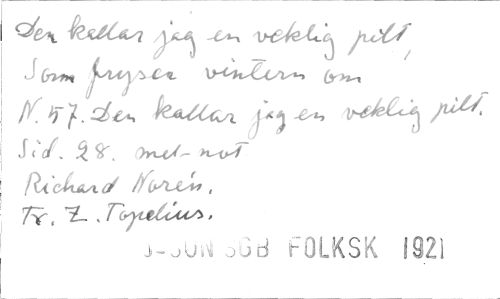 Den kallar jag en veklig pilt,
Som fryser vintern om
N. 57. Den kallar jag en veklig pilt.
Sid. 28. met not
Richard Norén.
Tr. Z. Topelius.
FOLKSK 1921